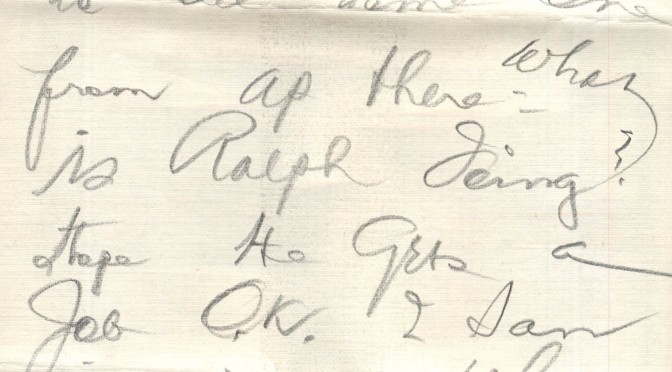 from up there - What
is Ralph Doing?
Hope He Gets a
Job O.K. I saw